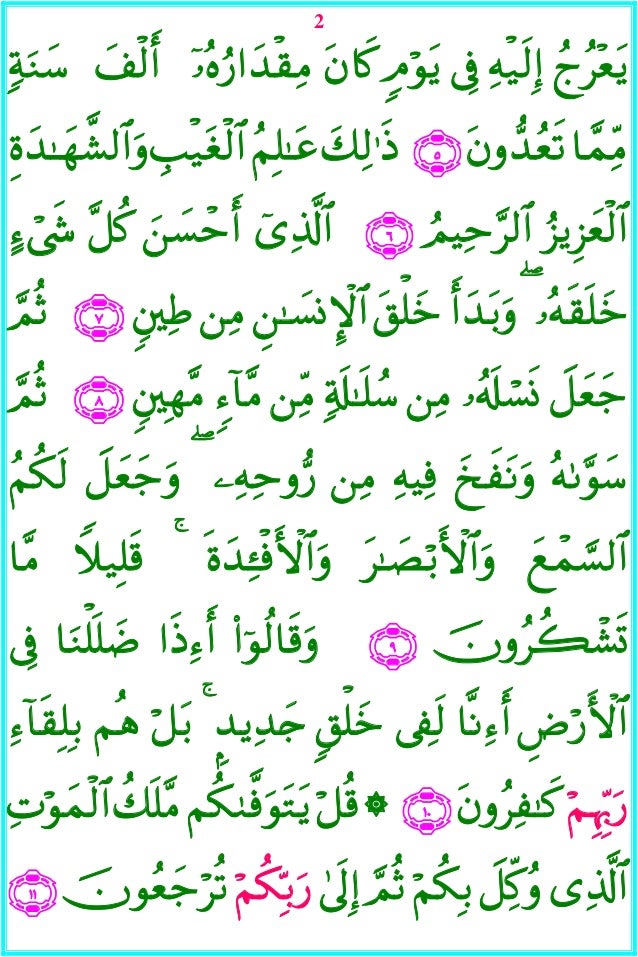 2
يَعْرُجُ إِلَيْهِ فِى يَوْمٍۢ كَانَ مِقْدَارُهُۥٓ أَلْفَ سَنَةٍۢ
مِّمَّا تَعُدُّونَ ٥ ذَٰلِكَ عَـٰلِمُ ٱلْغَيْبِ وَٱلشَّهَـٰدَةِ
ٱلْعَزِيزُ ٱلرَّحِيمُ ٦ ٱلَّذِىٓ أَحْسَنَ كُلَّ شَىْءٍ
خَلَقَهُۥ ۖ وَبَدَأَ خَلْقَ ٱلْإِنسَـٰنِ مِن طِينٍۢ ٧ ثُمَّ
جَعَلَ نَسْلَهُۥ مِن سُلَـٰلَةٍۢ مِّن مَّآءٍۢ مَّهِينٍۢ ٨ ثُمَّ
سَوَّىٰهُ وَنَفَخَ فِيهِ مِن رُّوحِهِۦ ۖ وَجَعَلَ لَكُمُ
ٱلسَّمْعَ وَٱلْأَبْصَـٰرَ وَٱلْأَفْـِٔدَةَ ۚ قَلِيلًۭا مَّا
تَشْكُرُونَ ٩ وَقَالُوٓا۟ أَءِذَا ضَلَلْنَا فِى
ٱلْأَرْضِ أَءِنَّا لَفِى خَلْقٍۢ جَدِيدٍۭ ۚ بَلْ هُم بِلِقَآءِ
رَبِّهِمْ كَـٰفِرُونَ ١٠ ۞ قُلْ يَتَوَفَّىٰكُم مَّلَكُ ٱلْمَوْتِ
ٱلَّذِى وُكِّلَ بِكُمْ ثُمَّ إِلَىٰ رَبِّكُمْ تُرْجَعُونَ ١١